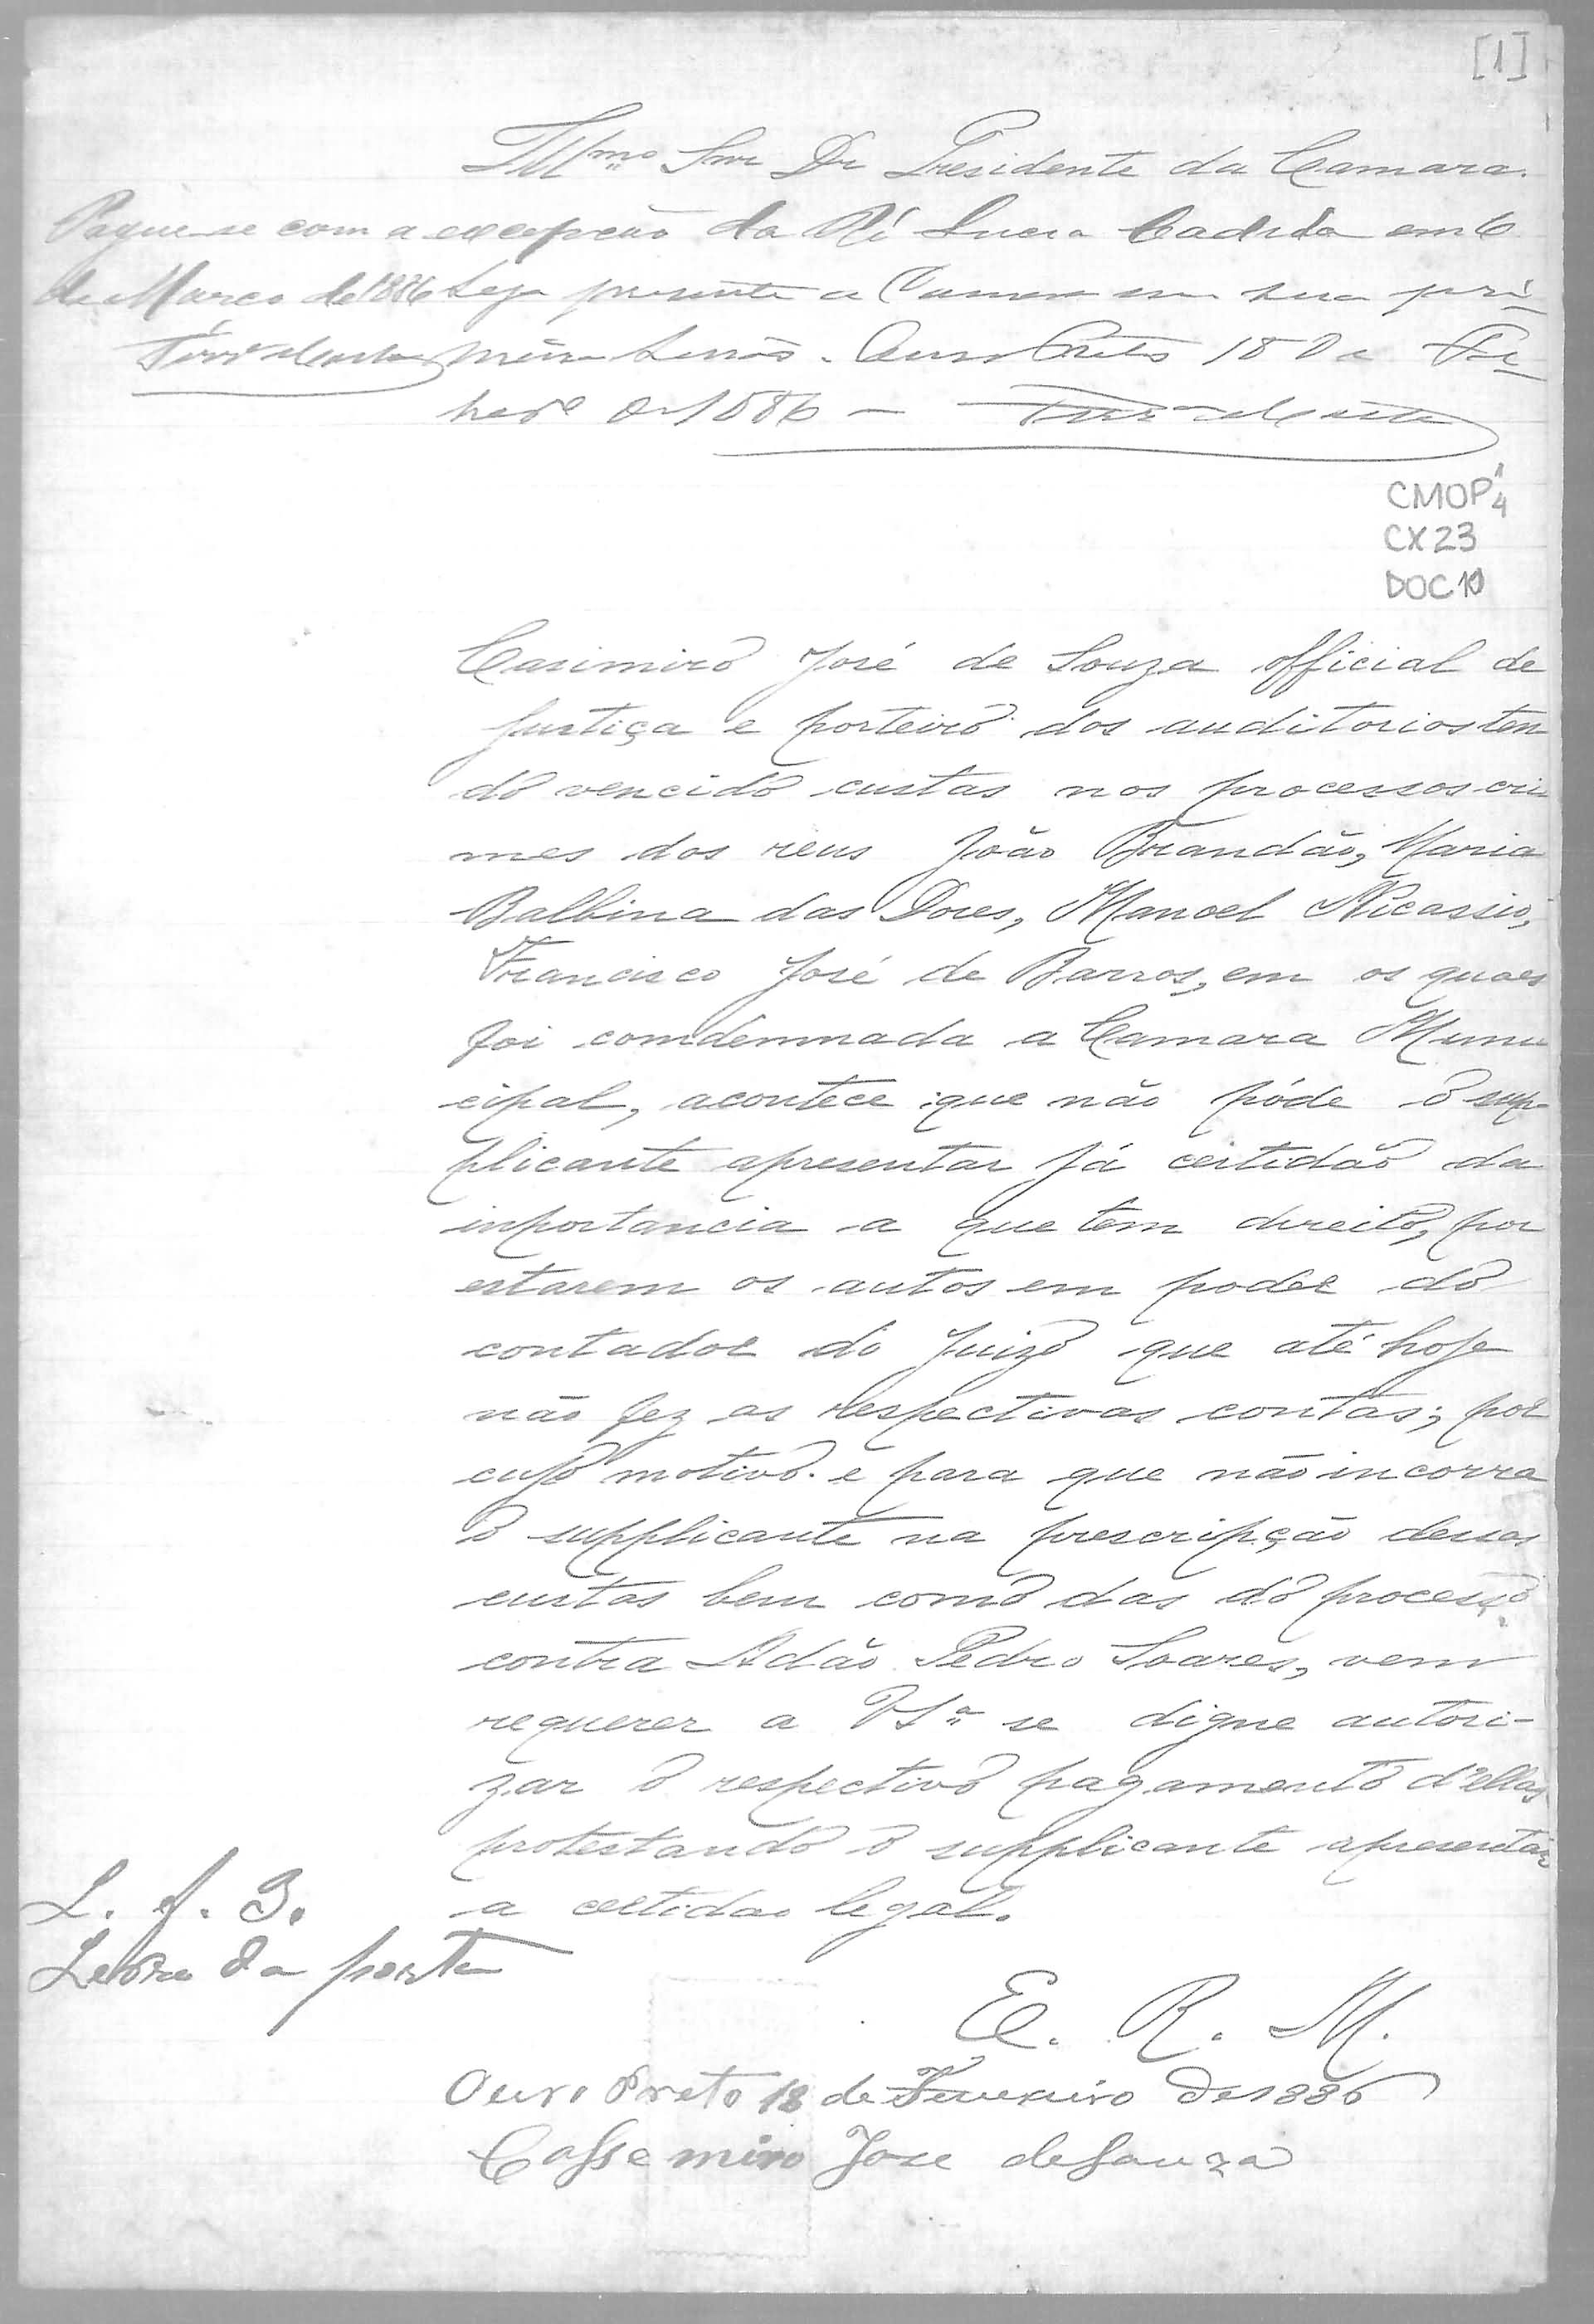 [1]
Illmo Snr Dr Presidente da Camara.
Pague-se com a excepção da Ré Lucia Cadida em 6
de Março de 1886
Seja presente a Camara em sua pri-
meira Sessão. Ouro Preto 18 de Fe-
ver.º de 1886 —
CMOP 1/4
CX 23
DOC 10
Casimiro José de Souza official de
Justiça e porteiro dos auditorios ten
do vencido custas nos processos cri-
mes dos reus João Brandão, Maria
Balbina das Dores, Manoel Nicassio,
Francisco José de Barros, em os quaes
foi comdemnada a Camara Muni
cipal, acontece que não póde o sup-
plicante apresentar já certidão da
inportancia a que tem direito, por
estarem os autos em poder do
contador do Juizo que até hoje
não fez as respectivas contas; por
cujo motivo e para que não incorra
o supplicante na prescripção dessas
custas bem como das do processo
contra Adão Pedro Soares, vem
requerer a VSª se digne autori-
zar o respectivo pagamento d'ellas
protestando o supplicante apresentar
a certidão legal.
L. f. 3.
Letra da porta
E. R. M.
Ouro Preto 18 de Fevereiro de 1886
Cassemiro Jose de Souza